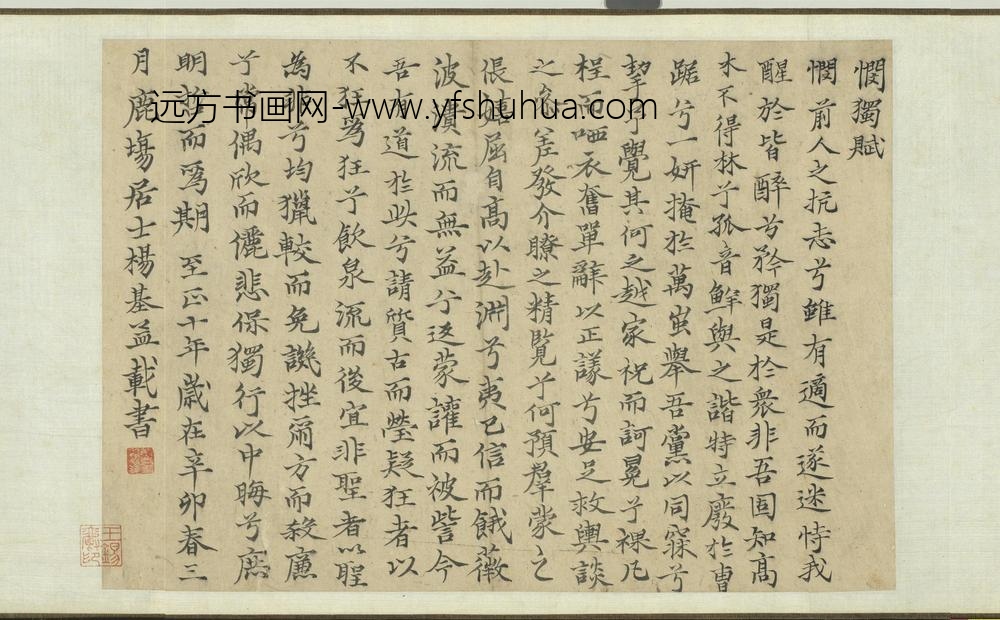 憫獨賦
憫前人之抗志兮雖有適而遂迷恃我
醒於皆醉兮矜獨是於衆非吾固知高
木不得林兮孤音鮮與之諧特立廢於曹
踞兮一妍掩於萬蚩舉吾黨以同寐兮
挈予覺其何之越家祝而訶冕兮裸凡
桯而衣奮單辭以正議兮安足救輿談
之差發介瞭之精覽兮何預羣蒙之
倀嬉屈自高以赴淵兮夷已信而餓薇
波滇流而無益兮返蒙讙而被訾今
吾有道於此兮請質古而瑩疑狂者以
不狂爲狂兮飲泉流而後宜非聖者以聖
為非兮均獵較而免譏挫爾方而殺廉
兮當偶欣而儷悲保獨行以中晦兮庶
明哲而爲期 至正十年歲在辛卯春三
月鹿場居士楊基益載書
远方书画网-www.yfshuhua.com